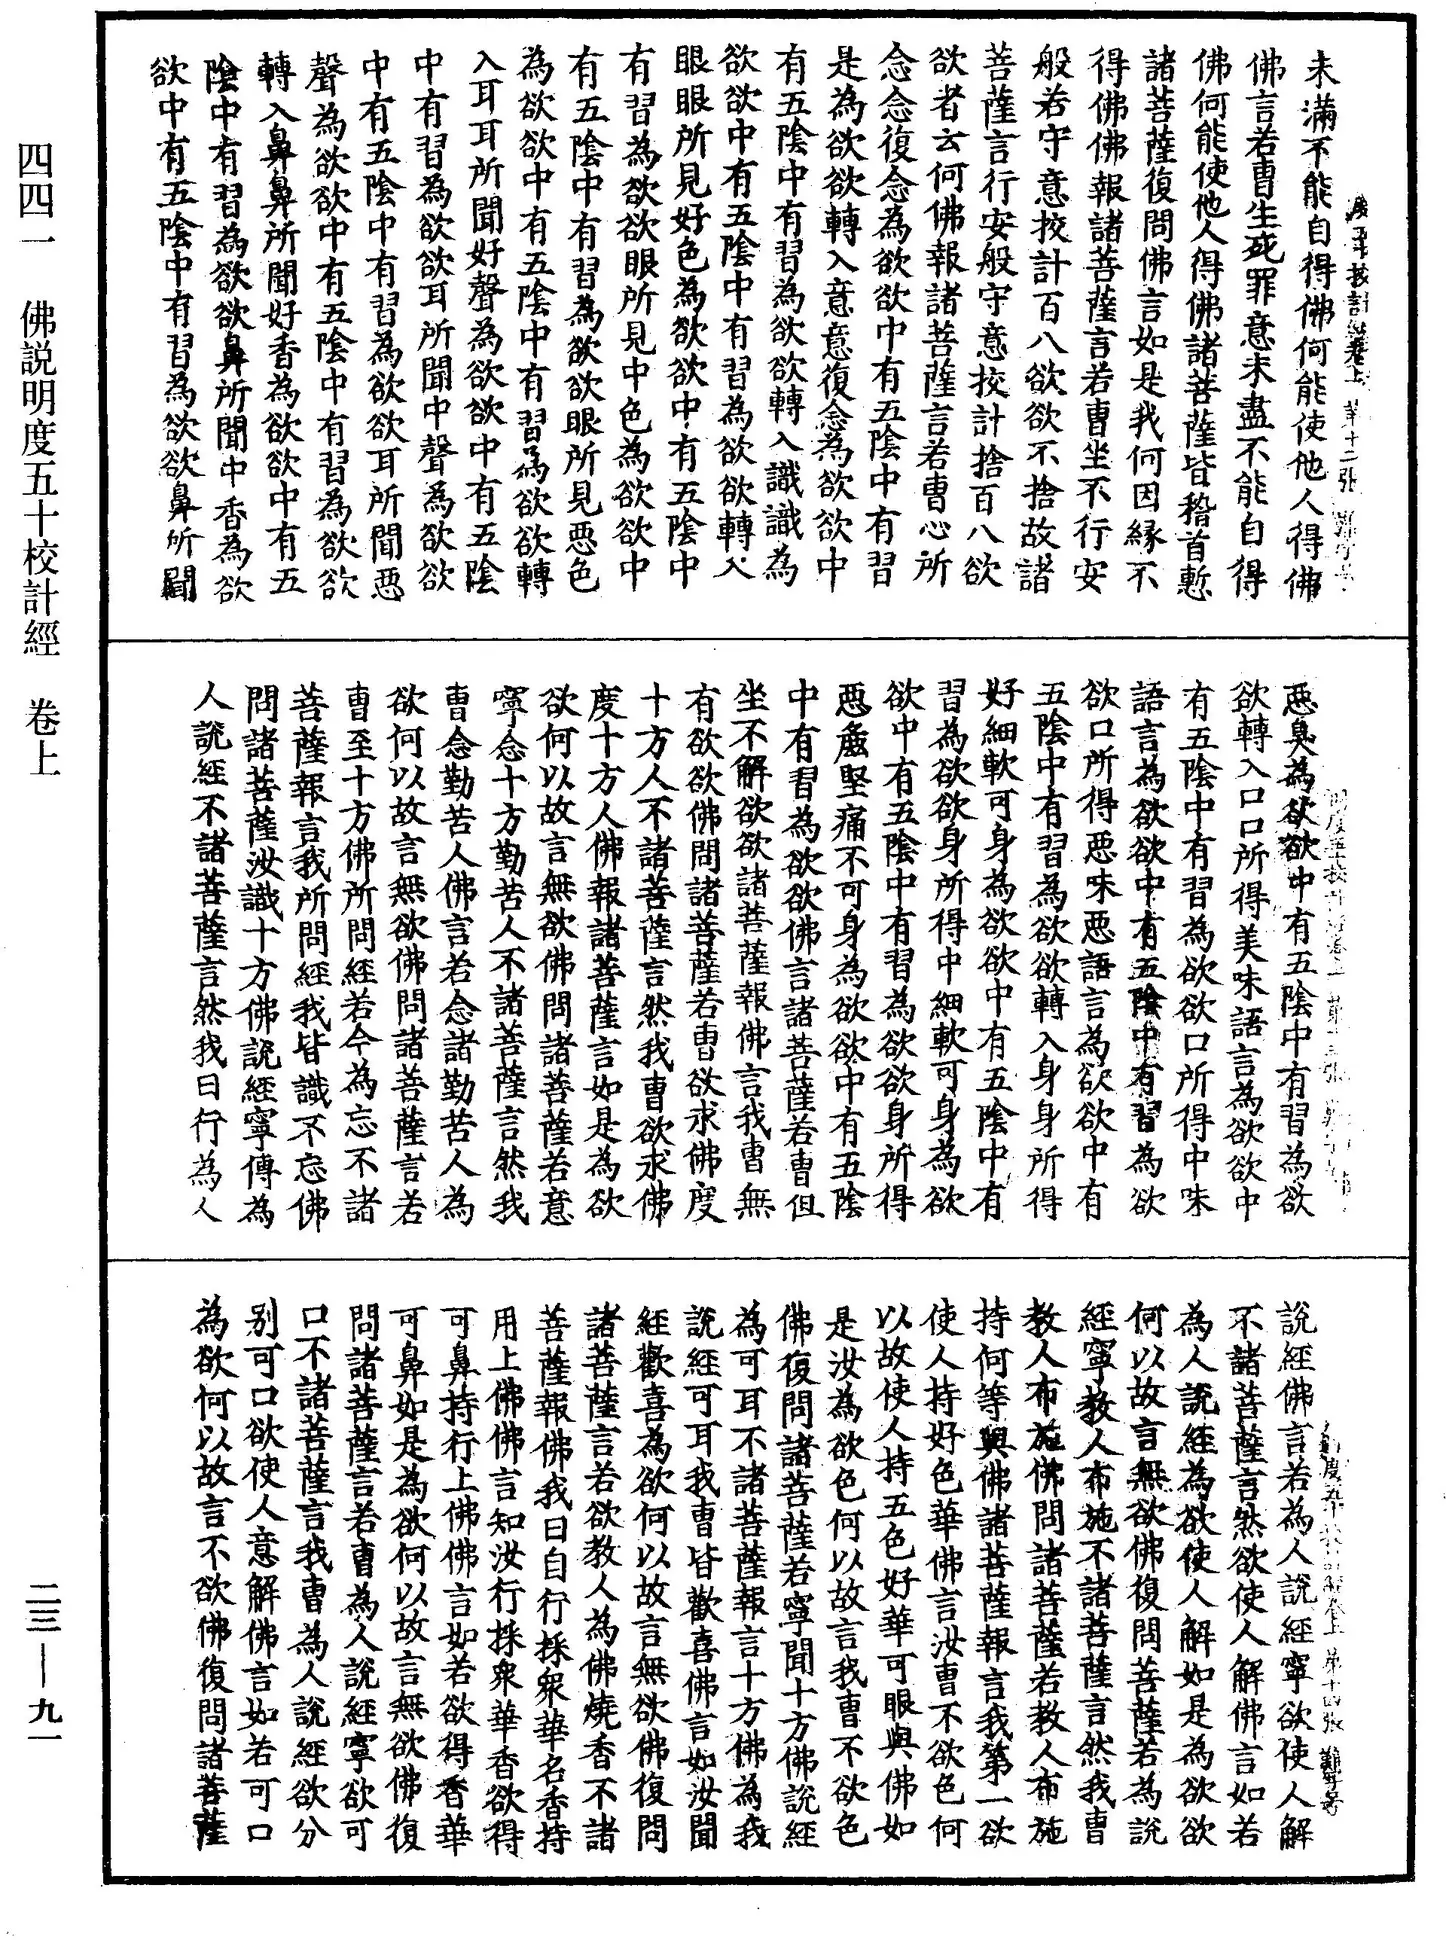 未滿不能自得佛何能使他人得佛
佛言若曹生死罪意未盡不能自得
佛何能使他人得佛諸菩薩皆稽首慙
諸菩薩復問佛言如是我何因緣不
得佛佛報諸菩薩言若曹坐不行安
般若守意挍計百八欲欲不捨故諸
菩薩言行安般守意挍計捨百八欲
欲者云何佛報諸菩薩言若曹心所
念念復念為欲欲中有五陰中有習
是為欲欲轉入意意復念為欲欲中
有五陰中有習為欲欲轉入識識為
欲欲中有五陰中有習為欲欲轉入
眼眼所見好色為欲欲中有五陰中
有習為欲欲眼所見中色為欲欲中
有五陰中有習為欲欲眼所見惡色
為欲欲中有五陰中有習為欲欲轉
入耳耳所聞好聲為欲欲中有五陰
中有習為欲欲耳所聞中聲為欲欲
中有五陰中有習為欲欲耳所聞惡
聲為欲欲中有五陰中有習為欲欲
轉入鼻鼻所聞好香為欲欲中有五
陰中有習為欲欲鼻所聞中香為欲
欲中有五陰中有習為欲欲鼻所聞
惡臭為欲欲中有五陰中有習為欲
欲轉入口口所得美味語言為欲欲中
有五陰中有習為欲欲口所得中味
語言為欲欲中有五陰中有習為欲
欲口所得惡味惡語言為欲欲中有
五陰中有習為欲欲轉入身身所得
好細軟可身為欲欲中有五陰中有
習為欲欲身所得中細軟可身為欲
欲中有五陰中有習為欲欲身所得
惡麁堅痛不可身為欲欲中有五陰
中有習為欲欲佛言諸菩薩若曹但
坐不解欲欲諸菩薩報佛言我曹無
有欲欲佛問諸菩薩若曹欲求佛度
十方人不諸菩薩言然我曹欲求佛
度十方人佛報諸菩薩言如是為欲
欲何以故言無欲佛問諸菩薩若意
寧念十方勤苦人不諸菩薩言然我
曹念勤苦人佛言若念諸勤苦人為
欲何以故言無欲佛問諸菩薩言若
曹至十方佛所問經若今為忘不諸
菩薩報言我所問經我皆識不忘佛
問諸菩薩汝識十方佛說經寧傳為
人說經不諸菩薩言然我曰行為人
說經佛言若為人說經寧欲使人解
不諸菩薩言然欲使人解佛言如若
為人說經為欲使人解如是為欲欲
何以故言無欲佛復問菩薩若為說
經寧教人布施不諸菩薩言然我曹
教人布施佛問諸菩薩若教人布施
持何等與佛諸菩薩報言我第一欲
使人持好色華佛言汝曹不欲色何
以故使人持五色好華可眼與佛如
是汝為欲色何以故言我曹不欲色
佛復問諸菩薩若寧聞十方佛說經
為可耳不諸菩薩報言十方佛為我
說經可耳我曹皆歡喜佛言如汝聞
經歡喜為欲何以故言無欲佛復問
諸菩薩言若欲教人為佛燒香不諸
菩薩報佛我曰自行採衆華名香持
用上佛佛言知汝行採衆華香欲得
可鼻持行上佛佛言如若欲得香華
可鼻如是為欲何以故言無欲佛復
問諸菩薩言若曹為人說經寧欲可
口不諸菩薩言我曹為人說經欲分
別可口欲使人意解佛言如若可口
為欲何以故言不欲佛復問諸菩薩
四四一　佛説明度五十校計經　卷上
二三—九一